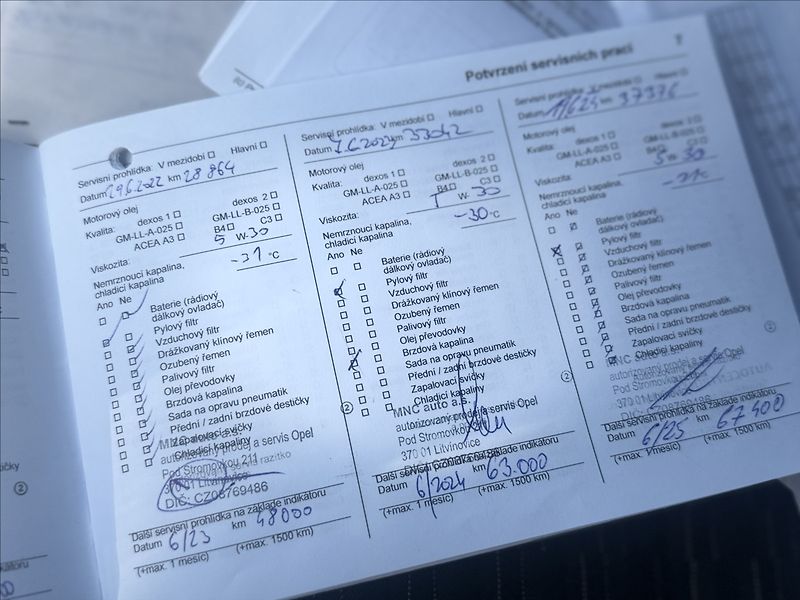 Potvrzení servisních prací
7
Servisní prohlídka: V mezidobí Hlavní
Datum 29.6.2022 km 28 864
Motorový olej
Kvalita: dexos 1 dexos 2
GM-LL-A-025 GM-LL-B-025
ACEA A3 B4 C3
Viskozita: 5 W-30
Nemrznoucí kapalina,
chladicí kapalina -31 °C
Ano Ne
Baterie (rádiový
dálkový ovladač)
Pylový filtr
Vzduchový filtr
Drážkovaný klínový řemen
Ozubený řemen
Palivový filtr
Olej převodovky
Brzdová kapalina
Sada na opravu pneumatik
Přední / zadní brzdové destičky
Zapalovací svíčky
Chladicí kapaliny
autorizovaný prodej a servis Opel
Pod Stromovkou 211
razítko
370 01 Litvínovice
DIČ: CZ08769486
Další servisní prohlídka na základě indikátoru
Datum 6/23 km 48000
(+max. 1 měsíc) (+max. 1500 km)
Servisní prohlídka: V mezidobí Hlavní
Datum 7.6.2023 km 33042
Motorový olej
Kvalita: dexos 1 dexos 2
GM-LL-A-025 GM-LL-B-025
ACEA A3 B4 C3
Viskozita: W-30
Nemrznoucí kapalina,
chladicí kapalina -30 °C
Ano Ne
Baterie (rádiový
dálkový ovladač)
Pylový filtr
Vzduchový filtr
Drážkovaný klínový řemen
Ozubený řemen
Palivový filtr
Olej převodovky
Brzdová kapalina
Sada na opravu pneumatik
Přední / zadní brzdové destičky
Zapalovací svíčky
Chladicí kapaliny
2
MNC auto a.s.
autorizovaný prodej a servis Opel
Pod Stromovkou
370 01 Litvínovice
Další servisní prohlídka na základě indikátoru
Datum 6/2024 km 63.000
(+max. 1 měsíc) (+max. 1500 km)
Servisní prohlídka: V mezidobí Hlavní
Datum km 37376
Motorový olej
Kvalita: dexos 1 dexos 2
GM-LL-A-025 GM-LL-B-025
ACEA A3 B4 C3
Viskozita: 5 W-30
Nemrznoucí kapalina,
chladicí kapalina
Ano Ne
Baterie (rádiový
dálkový ovladač)
Pylový filtr
Vzduchový filtr
Drážkovaný klínový řemen
Ozubený řemen
Palivový filtr
Olej převodovky
Brzdová kapalina
Sada na opravu pneumatik
Přední / zadní brzdové destičky
Zapalovací svíčky
Chladicí kapaliny
2
MNC auto a.s.
autorizovaný prodej a servis Opel
Pod Stromovkou
370 01 Litvínovice
Další servisní prohlídka na základě indikátoru
Datum 6/25 km 67 400
(+max. 1 měsíc) (+max. 1500 km)
2